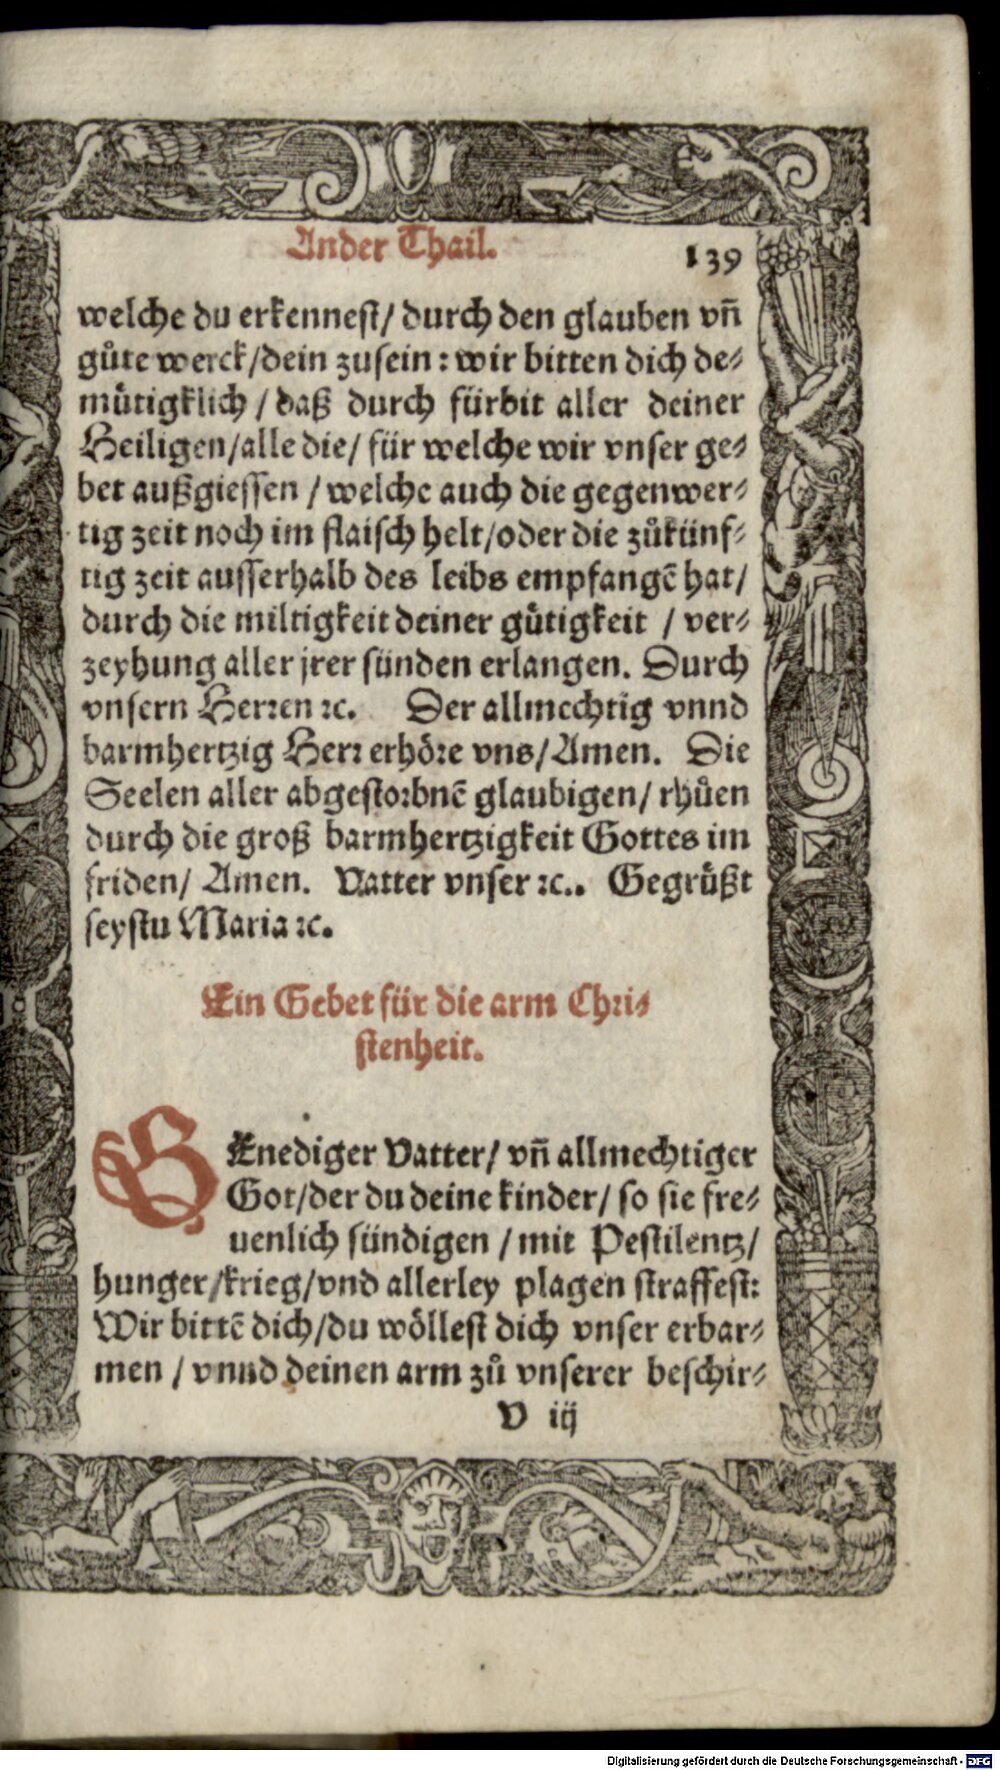 Ander Thail.
139
welche du erkennest/ durch den glauben vn̄
gůte werck/dein zusein: wir bitten dich de⸗
mütigklich / daß durch fürbit aller deiner
Heiligen/alle die/ für welche wir vnser ge⸗
bet außgiessen / welche auch die gegenwer⸗
tig zeit noch im flaisch helt/oder die zůkünf⸗
tig zeit ausserhalb des leibs empfangē hat/
durch die miltigkeit deiner gütigkeit / ver⸗
zeyhung aller jrer sünden erlangen. Durch
vnsern Herren ꝛc. Der allmechtig vnnd
barmhertzig Herr erhöre vns/Amen. Die
Seelen aller abgestorbnē glaubigen/ rhůen
durch die groß barmhertzigkeit Gottes im
friden/ Amen. Vatter vnser ꝛc.. Gegrüßt
seystu Maria ꝛc.
Ein Gebet für die arm Chri⸗
stenheit.
GEnediger Vatter/ vn̄ allmechtiger
Got/der du deine kinder/ so sie fre⸗
uenlich sündigen / mit Pestilentz/
hunger/krieg/vnd allerley plagen straffest:
Wir bittē dich/du wöllest dich vnser erbar⸗
men / vnnd deinen arm zů vnserer beschir⸗
V iij
Digitalisierung gefördert durch die Deutsche Forschungsgemeinschaft - DFG